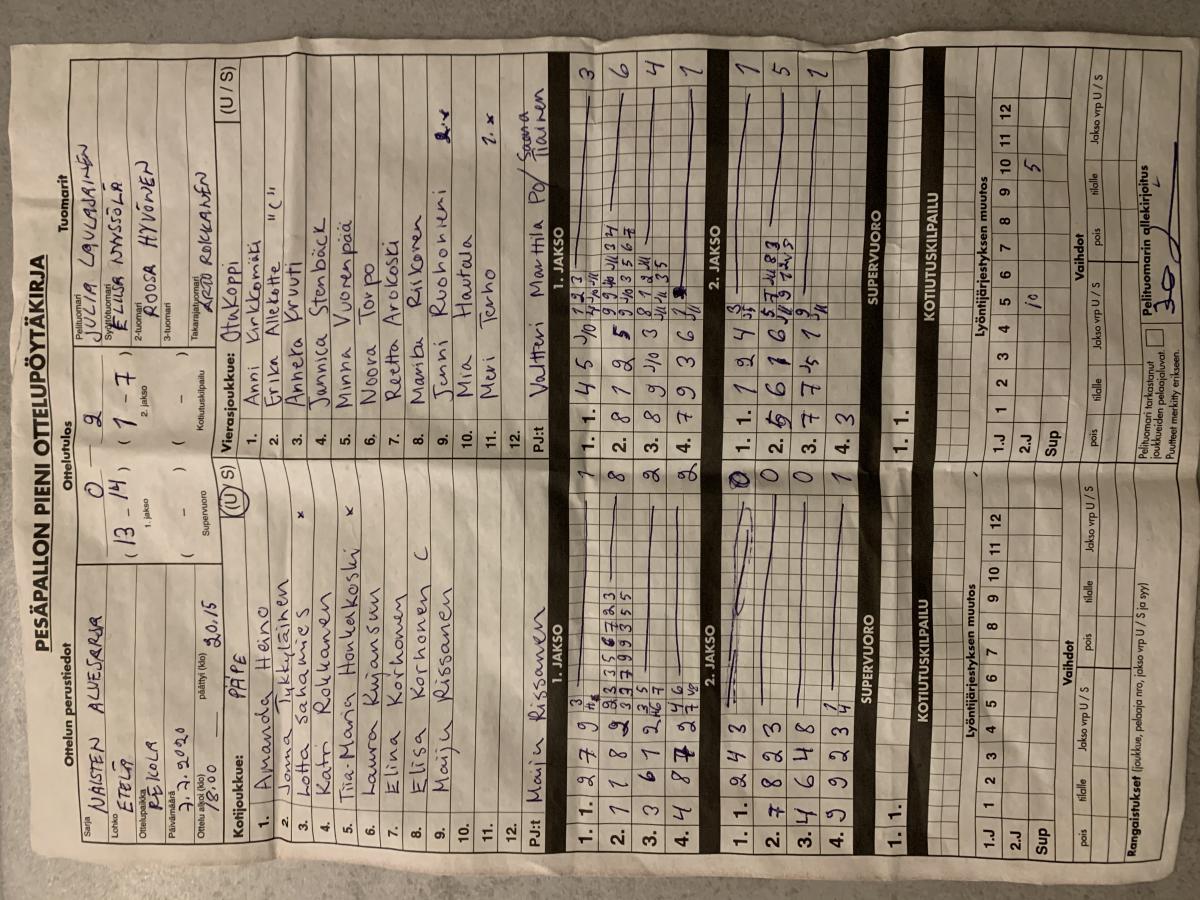 PESÄPALLON PIENI OTTELUPÖYTÄKIRJA
Ottelun perustiedot
Sarja NAISTEN ALUESARJA
Lohko ETELÄ
Ottelupaikka PEKOLA
Päivämäärä 7.7.2020
Ottelu alkoi (klo) 18.00 päättyi (klo) 20.15
Ottelutulos
0 – 2
(13 – 14) (1 – 7)
1. jakso 2. jakso
( – ) ( – )
Supervuoro Kotiutuskilpailu
Tuomarit
Pelituomari JULIA LAULAJAINEN
Syöttötuomari ELIISA NYYSSÖLÄ
2-tuomari ROOSA HYVÖNEN
3-tuomari
Takarajatuomari ARTO ROKKANEN
Kotijoukkue: PÄPE (U / S)
1. Amanda Heino
2. Jonna Tykkyläinen
3. Lotta Sahamies x
4. Katri Rokkanen
5. Tiia-Maria Honkakoski x
6. Laura Kuiansuu
7. Elina Korhonen
8. Elisa Korhonen C
9. Maiju Rissanen
10.
11.
12.
PJ:t Maiju Rissanen
Vierasjoukkue: Otukoppi (U / S)
1. Anni Kirkkomäki
2. Erika Allekotte "C"
3. Anneka Kruuti
4. Jannica Stenbäck
5. Minna Vuorenpää
6. Noora Torpo
7. Reetta Arokoski
8. Marika Riikonen
9. Jenni Ruohoniemi
10. Mia Hautala
11. Meri Terho 2. x
12.
PJ:t Valtteri Marttila PO/ Saana Tiainen
1. JAKSO
1. 1. 2 7 9 3 1
2. 1 1 8 2 8
3. 3 6 1 2 3 5 2
4. 4 8 7 2 4 6 2
1. JAKSO
1. 1. 4 5 3
2. 8 1 2 5 6
3. 8 9 3 4
4. 7 9 3 6 1
2. JAKSO
1. 1. 2 4 3 0
2. 7 8 2 3 0
3. 4 6 4 8 0
4. 9 9 2 3 1
2. JAKSO
1. 1. 1 2 4 1
2. 5 6 1 6 5
3. 7 7 1 1
4. 3
SUPERVUORO
1. 1.
SUPERVUORO
1. 1.
KOTIUTUSKILPAILU
KOTIUTUSKILPAILU
Lyöntijärjestyksen muutos
1.J 1 2 3 4 5 6 7 8 9 10 11 12
2.J
Sup
Lyöntijärjestyksen muutos
1.J 1 2 3 4 5 6 7 8 9 10 11 12
2.J 10 5
Sup
Vaihdot
pois tilalle Jakso vrp U / S pois tilalle Jakso vrp U / S
Vaihdot
pois tilalle Jakso vrp U / S pois tilalle Jakso vrp U / S
Rangaistukset (joukkue, pelaaja nro, jakso vrp U / S ja syy)
Pelituomari tarkastanut
joukkueiden pelaajaluvat.
Puutteet merkitty erikseen.
Pelituomarin allekirjoitus